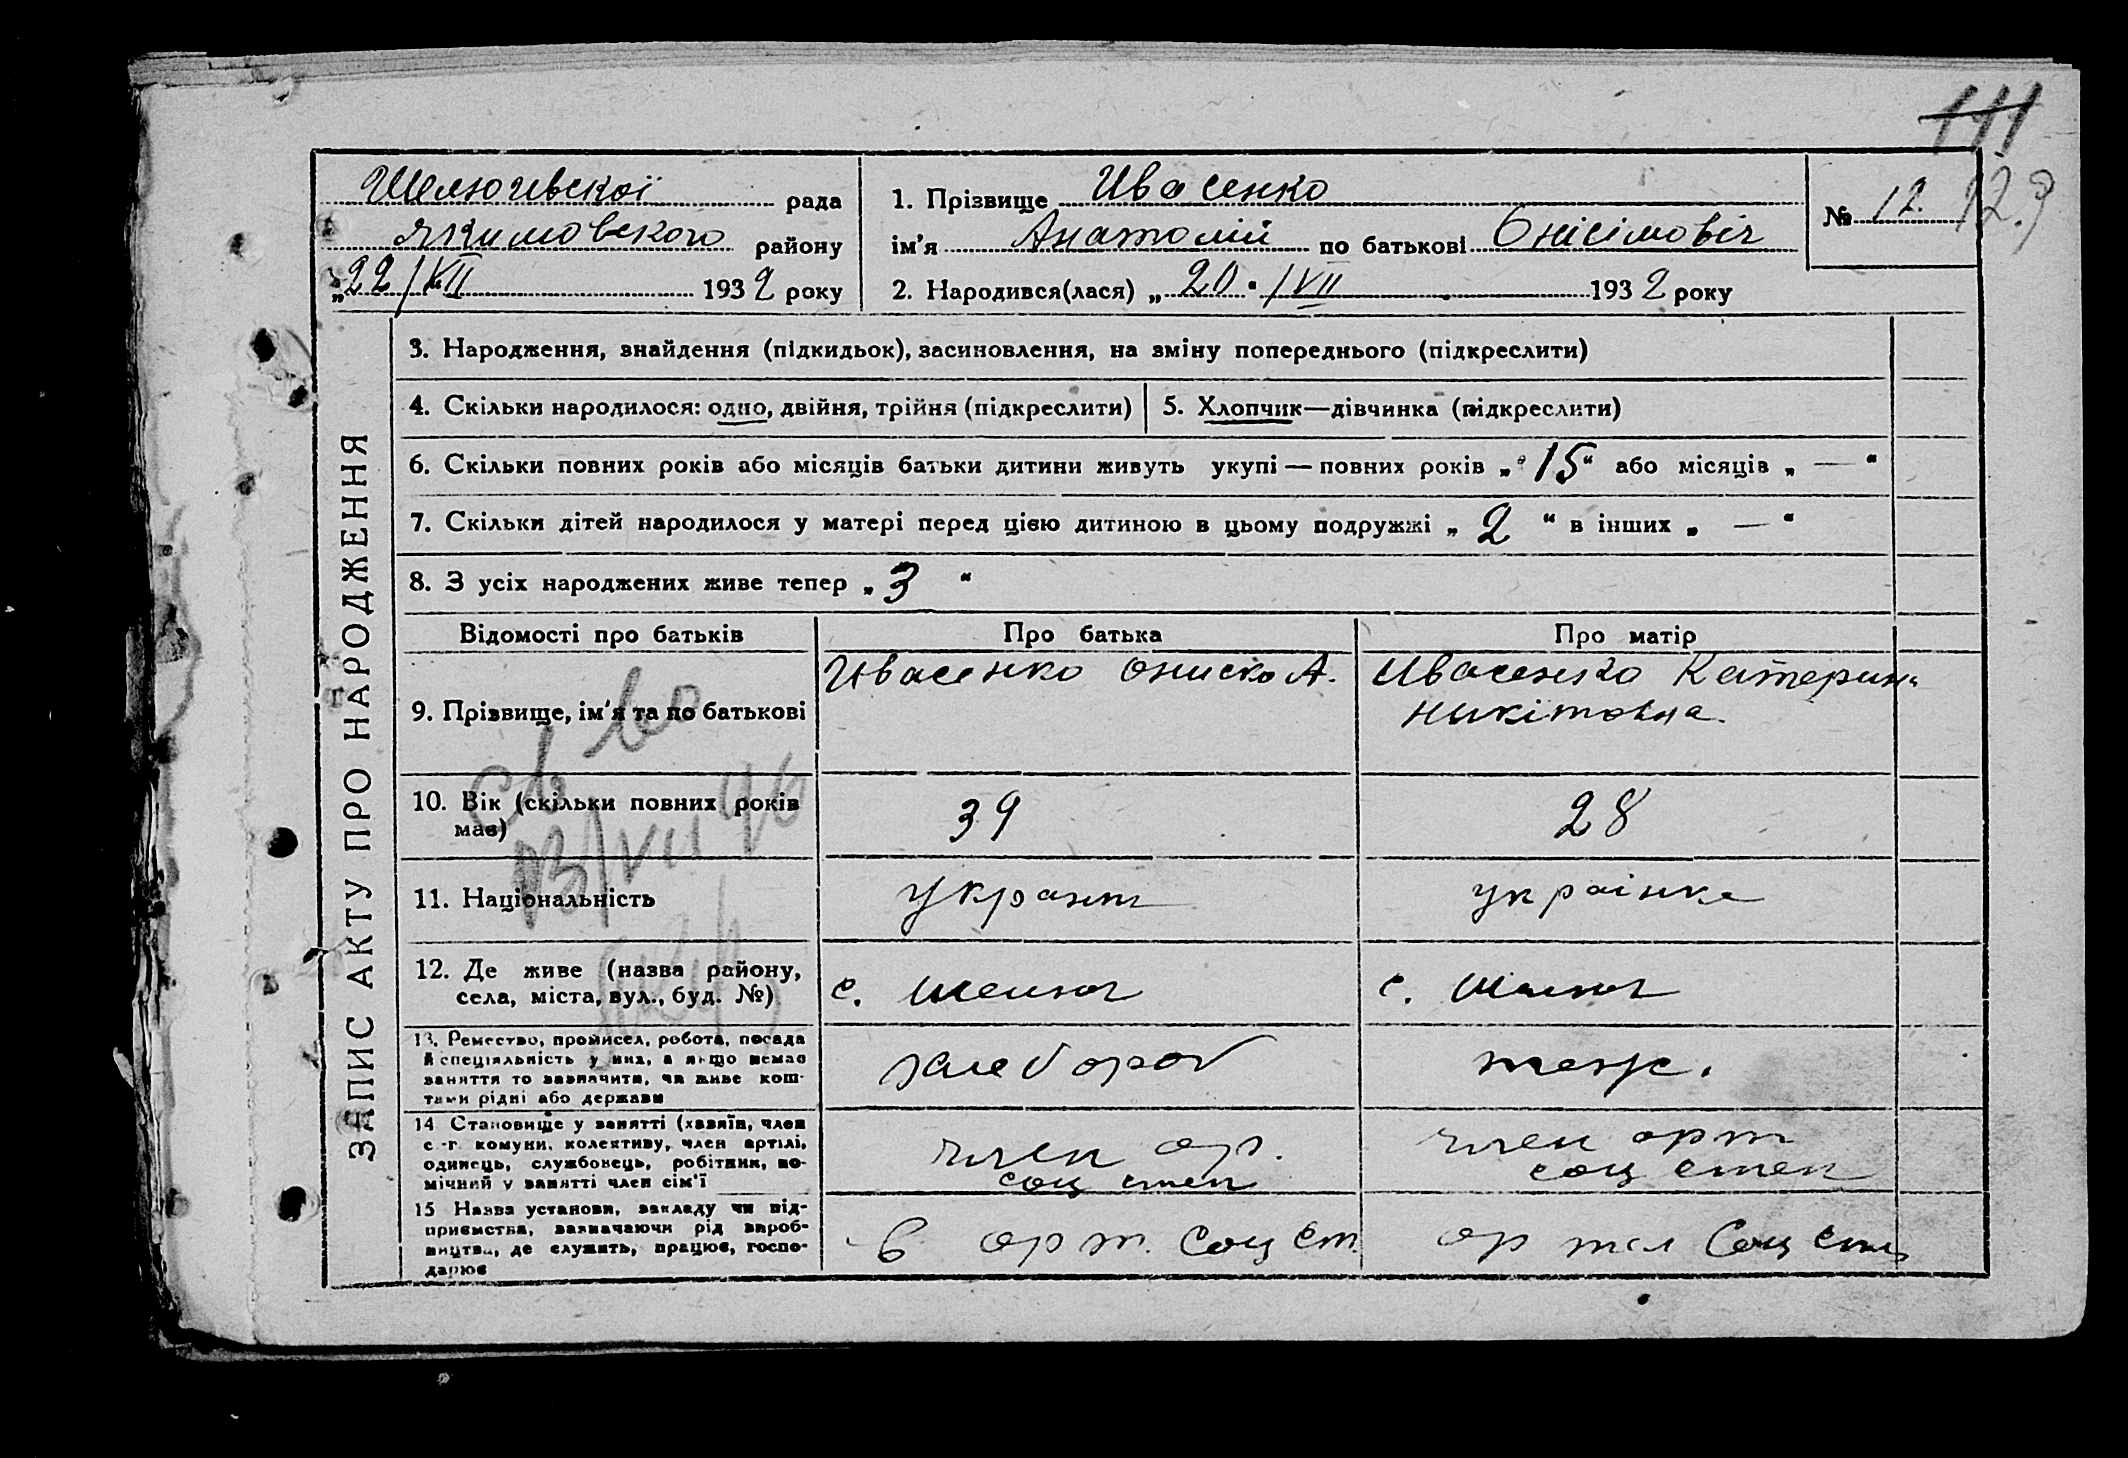 111
Шелюгівскої рада
Якимовского району
„22/VII 1932 року
1. Прізвище Ивасенко
ім'я Анатолій по батькові Онісімовіч
2. Народився(лася) „20" /VII 1932 року
№ 12. 123
ЗАПИС АКТУ ПРО НАРОДЖЕННЯ
3. Народження, знайдення (підкидьок), засиновлення, на зміну попереднього (підкреслити)
4. Скільки народилося: одно, двійня, трійня (підкреслити)
5. Хлопчик—дівчинка (підкреслити)
6. Скільки повних років або місяців батьки дитини живуть укупі — повних років „15" або місяців „ — "
7. Скільки дітей народилося у матері перед цією дитиною в цьому подружжі „ 2 " в інших „ — "
8. З усіх народжених живе тепер „ 3 "
Відомості про батьків Про батька Про матір
9. Прізвище, ім'я та по батькові
Ивасенко Ониско А.
Ивасенко Катерина
Никітовна.
св во
13/VII 46
10. Вік (скільки повних років
має)
39
28
11. Національність
українка
12. Де живе (назва району,
села, міста, вул., буд. №)
с. Шелюг
с. Шелюг
13. Ремество, промисел, робота, посада
й спеціяльність у них, а якщо немає
заняття то зазначити, чи живе кош-
тами рідні або держави
хлебороб
теж.
14 Становище у занятті (хазяїн, член
с.-г. комуни, колективу, член артілі,
одинець, службовець, робітник, по-
мічний у занятті член сім'ї
член ар.
соц степ
член арт
соц степ
15 Назва установи, закладу чи під-
приємства, зазначаючи рід вироб-
ництва, де служить, працює, госпо-
дарює
в арт. Соц ст.
Соц степ